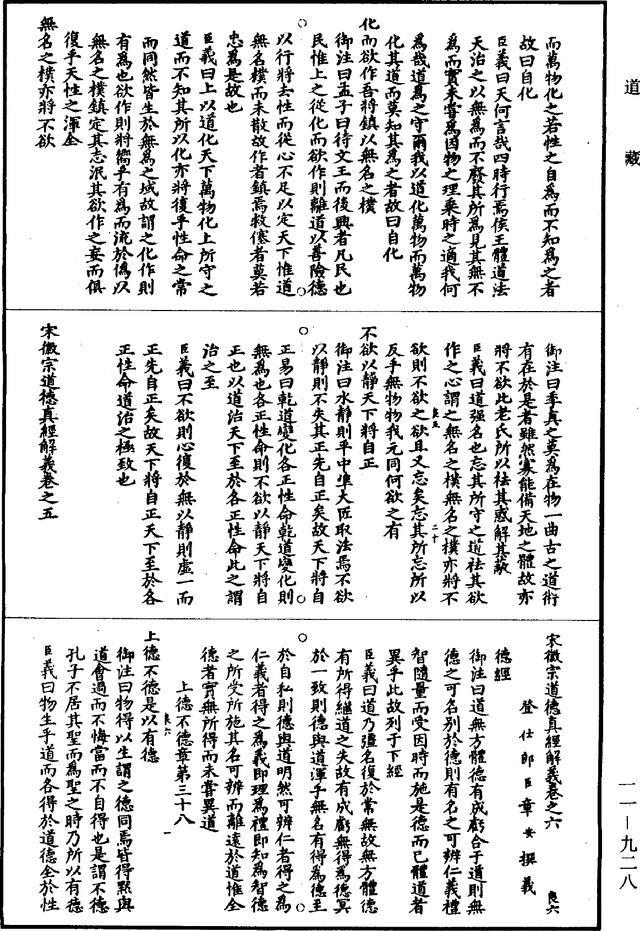 道藏
而萬物化之若性之自為而不知為之者
故曰自化
臣義曰天何言哉四時行焉侯王體道法
天治之以無為而不廢其所為見其無不
為而實未嘗為因物之理乘時之適我何
為哉道為之守爾我以道化萬物而萬物
化其道而莫知其為之者故曰自化
化而欲作吾將鎮以無名之樸
御注曰孟子曰待文王而後興者凡民也
民惟上之從化而欲作則離道以善險德
以行將去性而從心不足以定天下惟道
無名樸而未散故作者鎮焉救僿者莫若
忠為是故也
臣義曰上以道化天下萬物化上所守之
道而不知其所以化亦將復乎性命之常
而同然皆生於無為之域故謂之化作則
有為也欲作則將嚮乎有為而流於偽以
無名之樸鎮定其志泯其欲作之妄而俱
復乎天性之渾全
無名之樸亦將不欲
御注曰季真之莫為在物一曲古之道術
有在於是者雖然寡能備天地之體故亦
將不欲此老氏所以祛其惑解其蔽
臣義曰道強名也忘其所守之道祛其欲
作之心謂之無名之樸無名之樸亦將不
欲則不欲之欲且又忘矣忘其所忘所以
反乎無物物我元同何欲之有
良五 二十
不欲以靜天下將自正
御注曰水靜則平中準大匠取法焉不欲
以靜則不失其正先自正矣故天下將自
正易曰乾道變化各正性命乾道變化則
無為也各正性命則不欲以靜天下將自
正也以道治天下至於各正性命此之謂
治之至
臣義曰不欲則心復於無以靜則虛一而
正先自正矣故天下將自正天下至於各
正性命道治之極致也
宋徽宗道德真經解義卷之五
宋徽宗道德真經解義卷之六 良六
登仕郎臣章安撰義
德經
御注曰道無方體德有成虧合于道則無
德之可名別於德則有名之可辨仁義禮
智隨量而受因時而施是德而已體道者
異乎此故列于下經
臣義曰道乃彊名復於常無故無方體德
有所得繼道之失故有成虧無得為德冥
於一致則德與道渾乎無名有得為德至
於自私則德與道明然可辨仁者得之為
仁義者得之為義即理為禮即知為智德
之所受所施其名可辨而離遠於道惟全
德者實無所得而未嘗異道
上德不德章第三十八
良六 一
上德不德是以有德
御注曰物得以生謂之德同焉皆得默與
道會過而不悔當而不自得也是謂不德
孔子不居其聖而為聖之時乃所以有德
臣義曰物生乎道而各得於道德全於性
一一—九二八